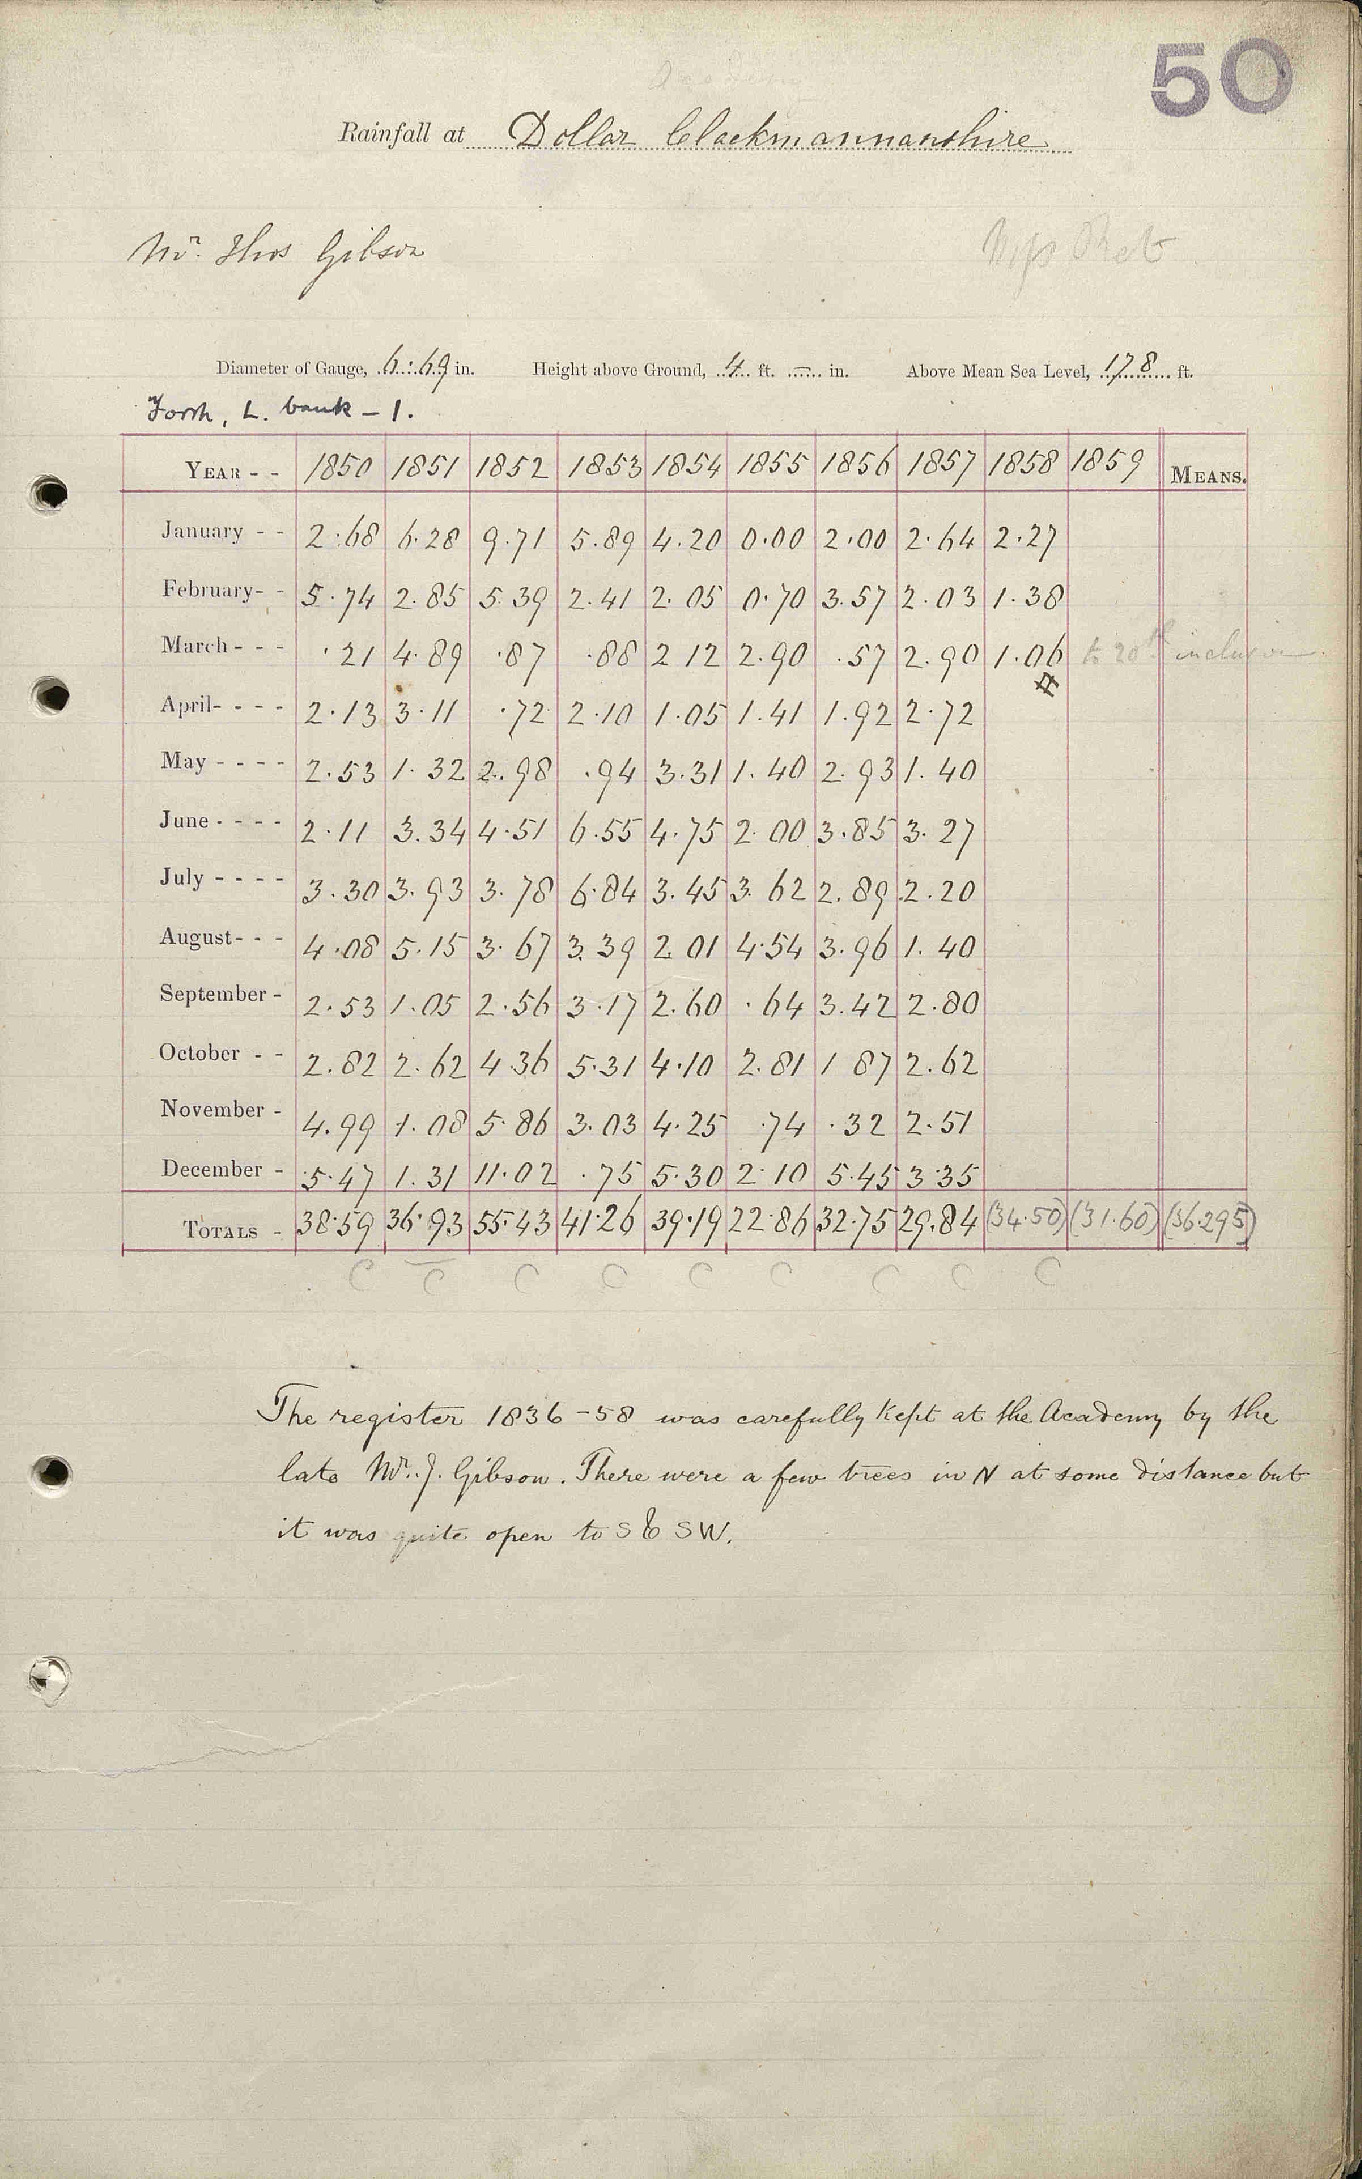 50
Academy
Rainfall at Dollar Clackmannanshire
Mr. Thos Gibson
Diameter of Gauge, 6.69 in. Height above Ground, 4 ft. – in. Above Mean Sea Level, 178 ft.
Forth, L. bank – 1.
YEAR - - 1850 1851 1852 1853 1854 1855 1856 1857 1858 1859 MEANS.
January - - 2.68 6.28 9.71 5.89 4.20 0.00 2.00 2.64 2.27
February- - 5.74 2.85 5.39 2.41 2.05 0.70 3.57 2.03 1.38
March - - - .21 4.89 .87 .88 2 12 2.90 .57 2.90 1.06 to 20th inclusive
April- - - - 2.13 3.11 .72 2.10 1.05 1.41 1.92 2.72
May - - - - 2.53 1.32 2.98 .94 3.31 1.40 2.93 1.40
June - - - - 2.11 3.34 4.51 6.55 4.75 2.00 3.85 3.27
July - - - - 3.30 3.93 3.78 6.84 3.45 3.62 2.89 2.20
August- - - 4.08 5.15 3.67 3.39 2.01 4.54 3.96 1.40
September - 2.53 1.05 2.56 3.17 2.60 .64 3.42 2.80
October - - 2.82 2.62 4.36 5.31 4.10 2.81 1 87 2.62
November - 4.99 1.08 5.86 3.03 4.25 .74 .32 2.51
December - 5.47 1.31 11.02 .75 5.30 2.10 5.45 3.35
TOTALS - 38.59 36.93 55.43 41.26 39.19 22.86 32.75 29.84 (34.50) (31.60) (36.295)
C C C C C C C C C
The register 1836–58 was carefully kept at the Academy by the
late Mr. J. Gibson. There were a few trees in N at some distance but
it was quite open to S & SW.